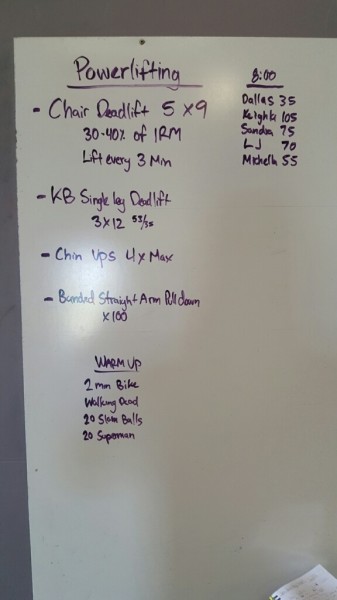 Powerlifting
- Chair Deadlift 5 x 9
30-40% of 1RM
Lift every 3 Min
- KB Single leg Deadlift
3 x 12 53/35
- Chin Ups 4 x Max
- Banded Straight Arm Pull down
x 100
WARM UP
2 min Bike
Walking Dead
20 Slam Balls
20 Superman
8:00
Dallas 35
105
Sandra 75
LJ 70
Michelle 55